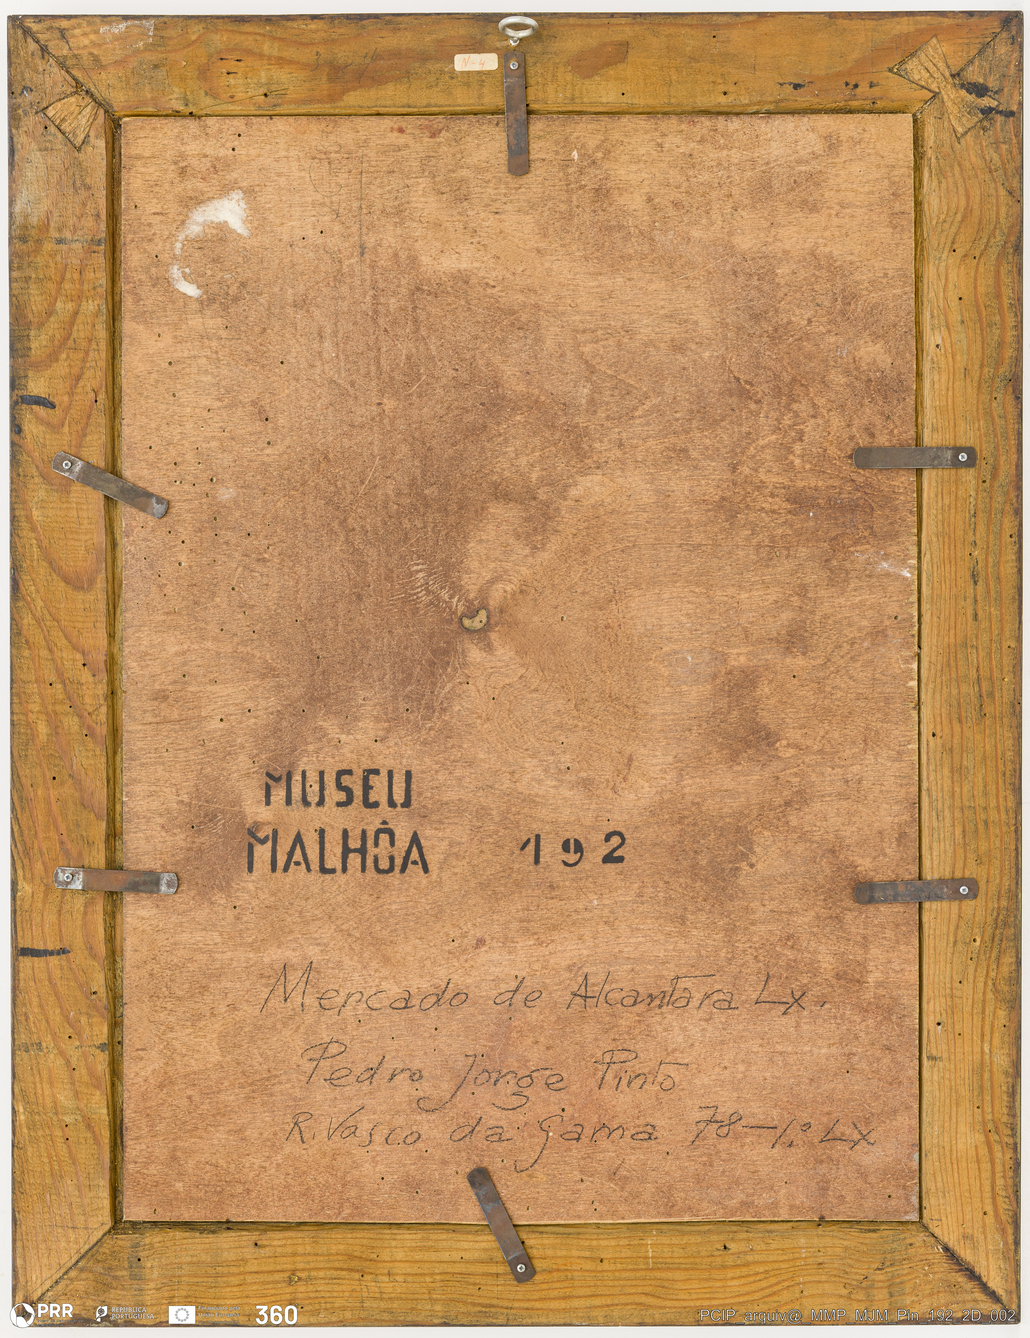 N-4
MUSEU
MALHÔA 192
Mercado de Alcantara Lx.
Pedro Jorge Pinto
R. Vasco da Gama 78-1.º LX
PRR
REPÚBLICA
PORTUGUESA
360
PCIP_arquiv@_MMP_MJM_Pin_192_2D_002